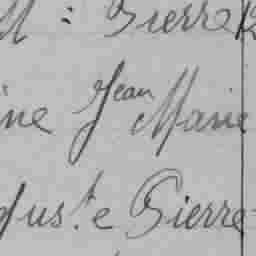 M = Pierre
ine Jean Marie
gus.te Pierre